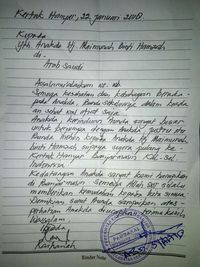 Kertak Hanyar, 22 Januari 2018
Kepada
Yth. Ananda Hj. Maimunah binti Hamzah
di -
Arab Saudi
Assalamualaikum Wr. Wb.
Semoga kesehatan dan kebahagiaan berada
pada Ananda, Bunda sekeluarga dalam keada
an sehat wal Afiat saja
Ananda kerinduan Bunda sangat besar
untuk berjumpa dengan Ananda, justru itu
Bunda mohon kepada Ananda Hj Maimunah
binti Hamzah supaya segera pulang ke
Kertak Hanyar Banjarmasin Kal-Sel.
Indonesia
Kedatangan Ananda sangat kami harapkan
di Banjarmasin Semoga Allah SWT selalu
memberikan kemudahan kepada kita semua
Demikian surat Bunda sampaikan atas
perhatian Ananda diucapkan terima kasih
Wassalam
Binder Note